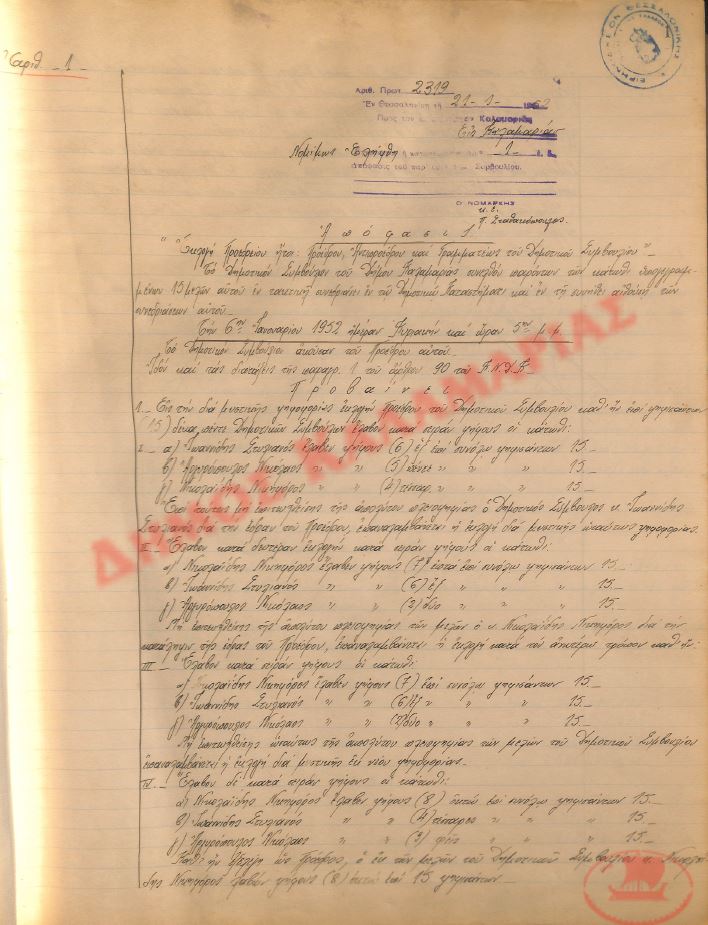 Ἀριθ. 1 -
ΕΙΡΗΝΟΔΙΚΕΙΟΝ ΘΕΣΣΑΛΟΝΙΚΗΣ
Αριθ. Πρωτ. 2319
Ἐν Θεσσαλονίκῃ τῇ 21-1-1952
Πρὸς τὸν Καλαμαριᾶς
Εἰς Καλαμαριάν
Νομίμως Ἐλήφθη 1
ἀπόφασις τοῦ Συμβουλίου.
Ο ΝΟΜΑΡΧΗΣ
κ.ε.
Π. Σταθακόπουλος
Ἀπόφασις 1
"Ἐκλογὴ Προεδρείου ἤτοι: Προέδρου, Ἀντιπροέδρου καὶ Γραμματέως τοῦ Δημοτικοῦ Συμβουλίου"-
Τὸ Δημοτικὸν Συμβούλιον τοῦ Δήμου Καλαμαριᾶς συνελθὸν παρόντων τῶν κάτωθι ὑπογεγραμ-
μένων 15 μελῶν αὐτοῦ ἐν τακτικῇ συνεδριάσει ἐν τῷ Δημοτικῷ Καταστήματι καὶ ἐν τῇ συνήθει αἰθούσῃ τῶν
συνεδριάσεων αὐτοῦ.-
Τὴν 6ην Ἰανουαρίου 1952 ἡμέραν Κυριακὴν καὶ ὥραν 5ην μ.μ.
Τὸ Δημοτικὸν Συμβούλιον ἀκοῦσαν τοῦ Προέδρου αὐτοῦ.-
Ἰδὸν καὶ τὰς διατάξεις τῆς παραγρ. 1 τοῦ ἄρθρου 90 τοῦ Κ.Ν.Δ.Κ.
Προβαίνει
1.- Εἰς τὴν διὰ μυστικῆς ψηφοφορίας ἐκλογὴν Προέδρου τοῦ Δημοτικοῦ Συμβουλίου καθ' ἣν ἐπὶ ψηφισάντων
(15) δέκα πέντε Δημοτικῶν Συμβούλων ἔλαβον κατὰ σειρὰν ψήφους οἱ κάτωθι:
I.- α) Ἰωαννίδης Στυλιανός ἔλαβεν ψήφους (6) ἓξ ἐπὶ συνόλω ψηφισάντων 15.-
β) Ἀργυρόπουλος Νικόλαος " " (5) πέντε " " 15.-
γ) Νικολαΐδης Νικηφόρος " " (4) τέσσαρ. " " 15.-
Ἐπὶ τούτοις μὴ ἐπιτευχθείσης τῆς ἀπολύτου πλειοψηφίας ὁ Δημοτικὸς Σύμβουλος κ. Ἰωαννίδης
Στυλιανὸς διὰ τὴν ἕδραν τοῦ Προέδρου, ἐπαναλαμβάνεται ἡ ἐκλογὴ διὰ μυστικῆς ὡσαύτως ψηφοφορίας.
II.- Ἔλαβον κατὰ δευτέραν ἐκλογὴν κατὰ σειρὰν ψήφους οἱ κάτωθι:
α) Νικολαΐδης Νικηφόρος ἔλαβεν ψήφους (7) ἑπτὰ ἐπὶ συνόλω ψηφισάντων 15.-
β) Ἰωαννίδης Στυλιανός " " (6) ἓξ " " " 15.-
γ) Ἀργυρόπουλος Νικόλαος " " (2) δύο " " " 15.-
Μὴ ἐπιτευχθείσης τῆς ἀπολύτου πλειοψηφίας τῶν μελῶν ὁ κ. Νικολαΐδης Νικηφόρος διὰ τὴν
κατάληψιν τῆς ἕδρας τοῦ Προέδρου, ἐπαναλαμβάνεται ἡ ἐκλογὴ κατὰ τὸν ἀνωτέρω τρόπον καθ' ἥν:
III.- Ἔλαβον κατὰ σειρὰν ψήφους οἱ κάτωθι:
α) Νικολαΐδης Νικηφόρος ἔλαβεν ψήφους (7) ἐπὶ συνόλω ψηφισάντων 15.-
β) Ἰωαννίδης Στυλιανός " " (6) ἓξ " " 15.-
γ) Ἀργυρόπουλος Νικόλαος " " (2) δύο " " 15.-
Μὴ ἐπιτευχθείσης ὡσαύτως τῆς ἀπολύτου πλειοψηφίας τῶν μελῶν τοῦ Δημοτικοῦ Συμβουλίου
ἐπαναλαμβάνεται ἡ ἐκλογὴ διὰ μυστικῆς ἐκ νέου ψηφοφορίας.-
IV.- Ἔλαβον δὲ κατὰ σειρὰν ψήφους οἱ κάτωθι:
α) Νικολαΐδης Νικηφόρος ἔλαβεν ψήφους (8) ὀκτὼ ἐπὶ συνόλω ψηφισάντων 15.-
β) Ἰωαννίδης Στυλιανός " " (4) τέσσαρες " " 15.-
γ) Ἀργυρόπουλος Νικόλαος " " (3) τρεῖς " " 15.-
Καθ' ἣν ἐξελέγη ὡς Πρόεδρος, ὁ ἐκ τῶν μελῶν τοῦ Δημοτικοῦ Συμβουλίου κ. Νικολαΐ-
δης Νικηφόρος λαβὼν ψήφους (8) ὀκτὼ ἐπὶ 15 ψηφισάντων.-
ΔΗΜΟΣ ΚΑΛΑΜΑΡΙΑΣ